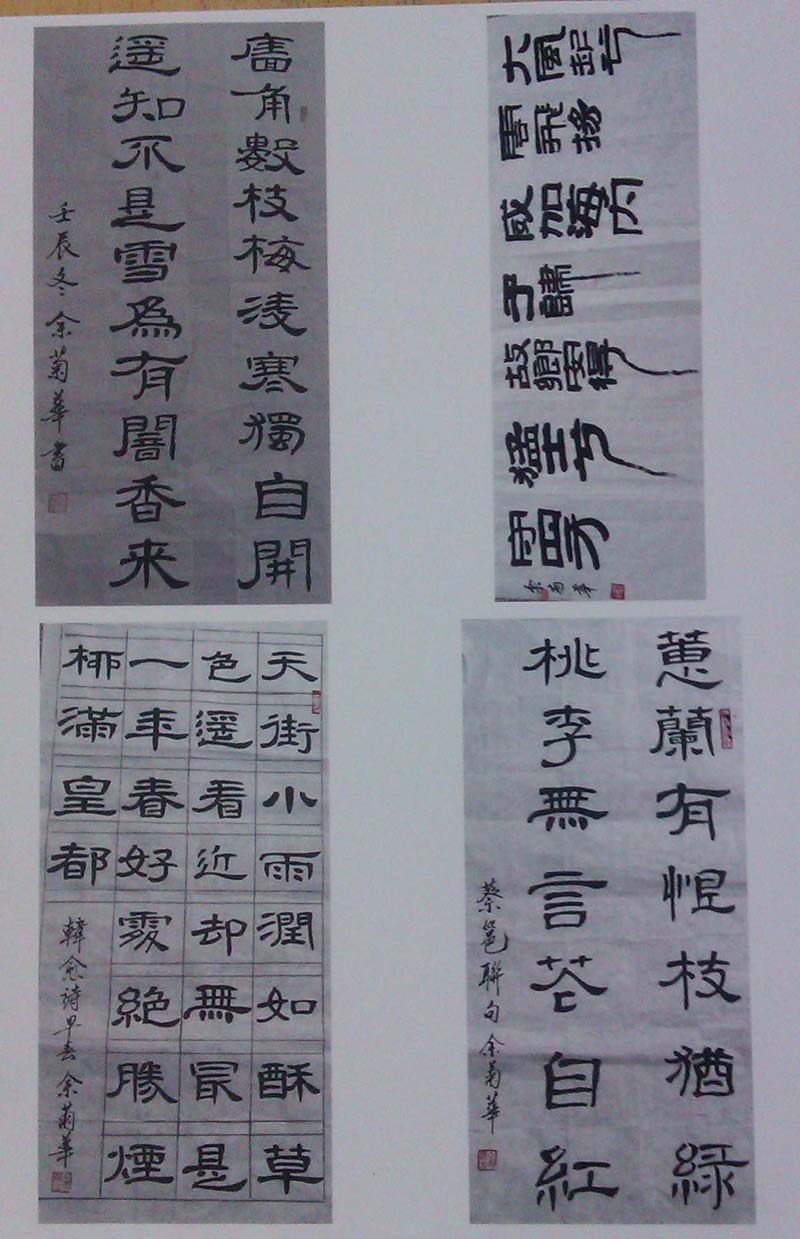 廧角數枝梅淩寒獨自開
遥知不是雪為有闇香来
壬辰冬余菊華書
大風起兮
雲飛揚
威加海内
兮歸
故鄉安得
猛士兮
守四方
余菊華
天街小雨潤如酥草
色遥看近却無最是
一年春好處絶勝煙
柳滿皇都
韓愈詩早春余菊華
蕙蘭有恨枝猶緑
桃李無言花自紅
蔡邕聯句余菊華